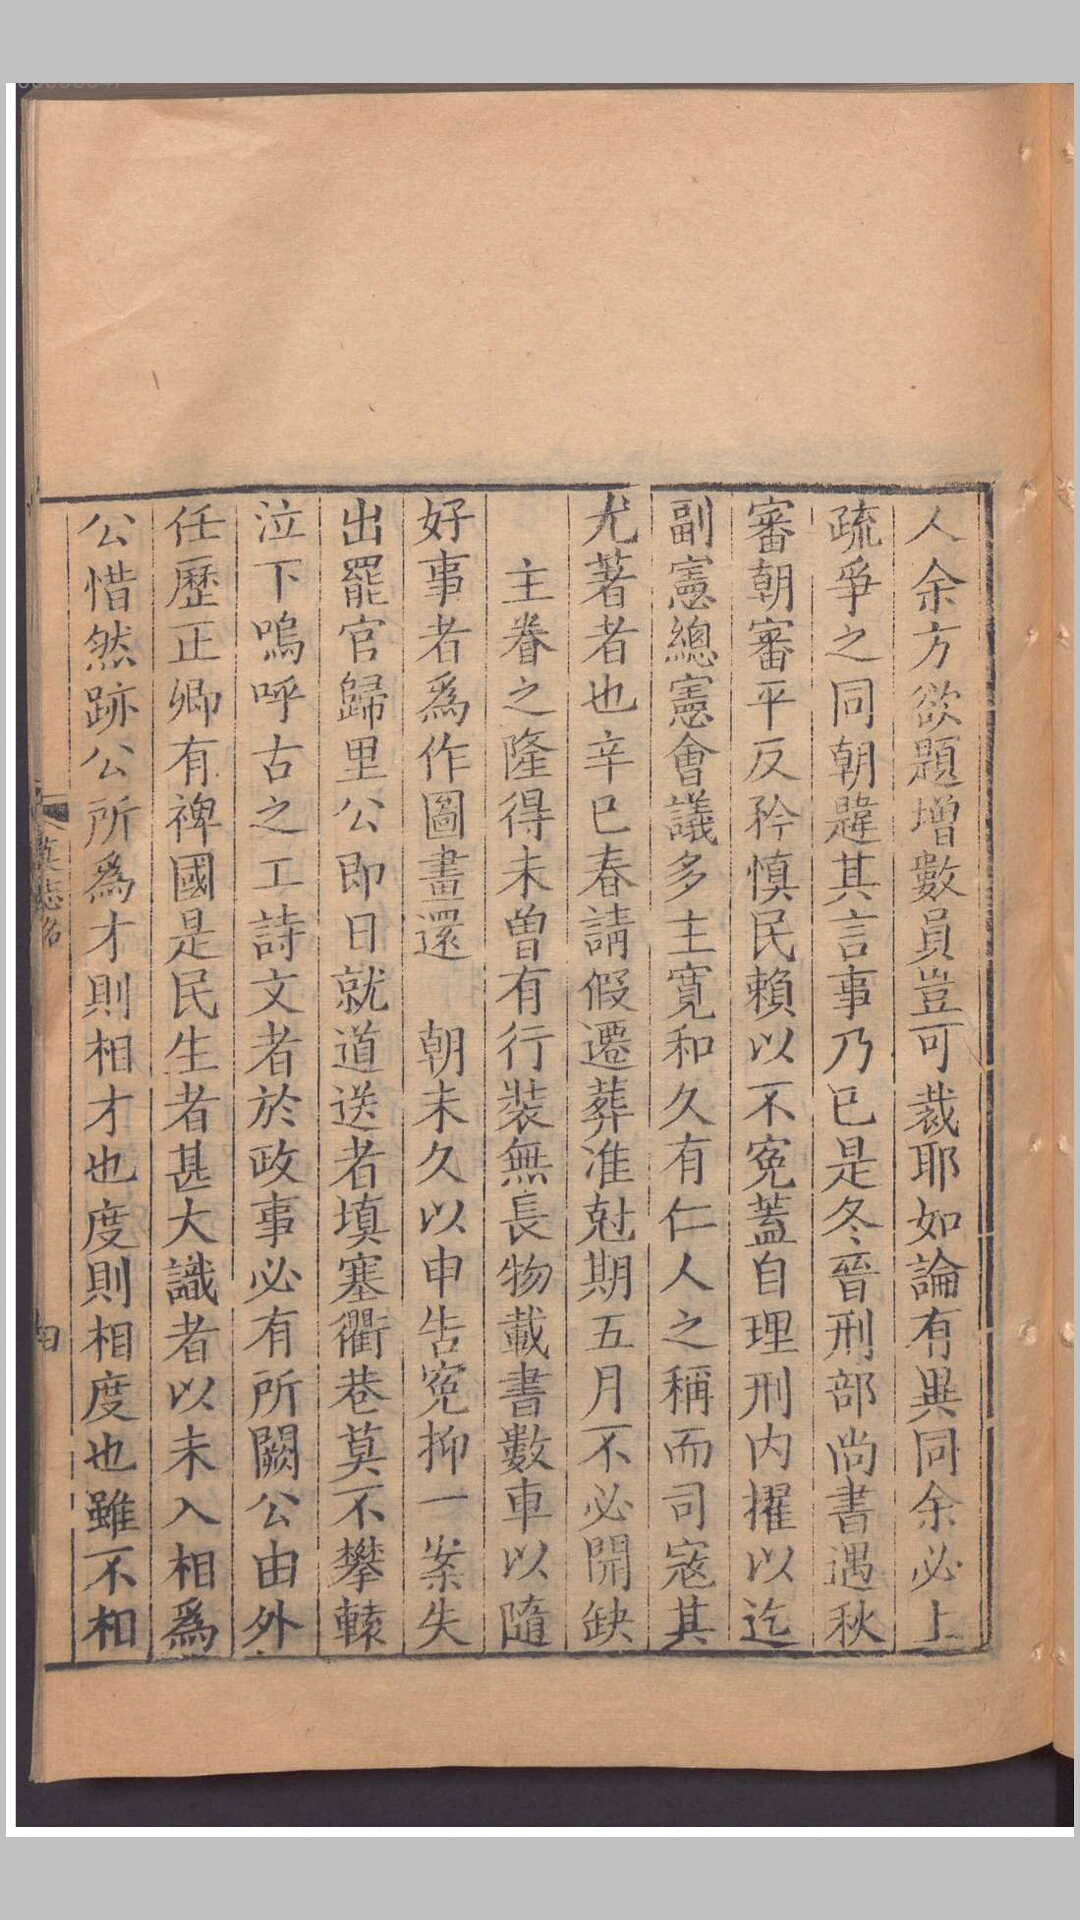 人余方欲題增數員豈可裁耶如論有異同余必上
疏爭之同朝韙其言事乃已是冬晉刑部尚書遇秋
審朝審平反矜慎民賴以不寃蓋自理刑内擢以迄
副憲總憲會議多主寬和久有仁人之稱而司寇其
尤著者也辛巳春請假遷葬准尅期五月不必開缺
主眷之隆得未曾有行裝無長物載書數車以隨
好事者爲作圖畫還　朝未久以申告寃抑一案失
出罷官歸里公即日就道送者填塞衢巷莫不攀轅
泣下嗚呼古之工詩文者於政事必有所闕公由外
任歷正卿有裨國是民生者甚大識者以未入相爲
公惜然跡公所爲才則相才也度則相度也雖不相
墓志銘